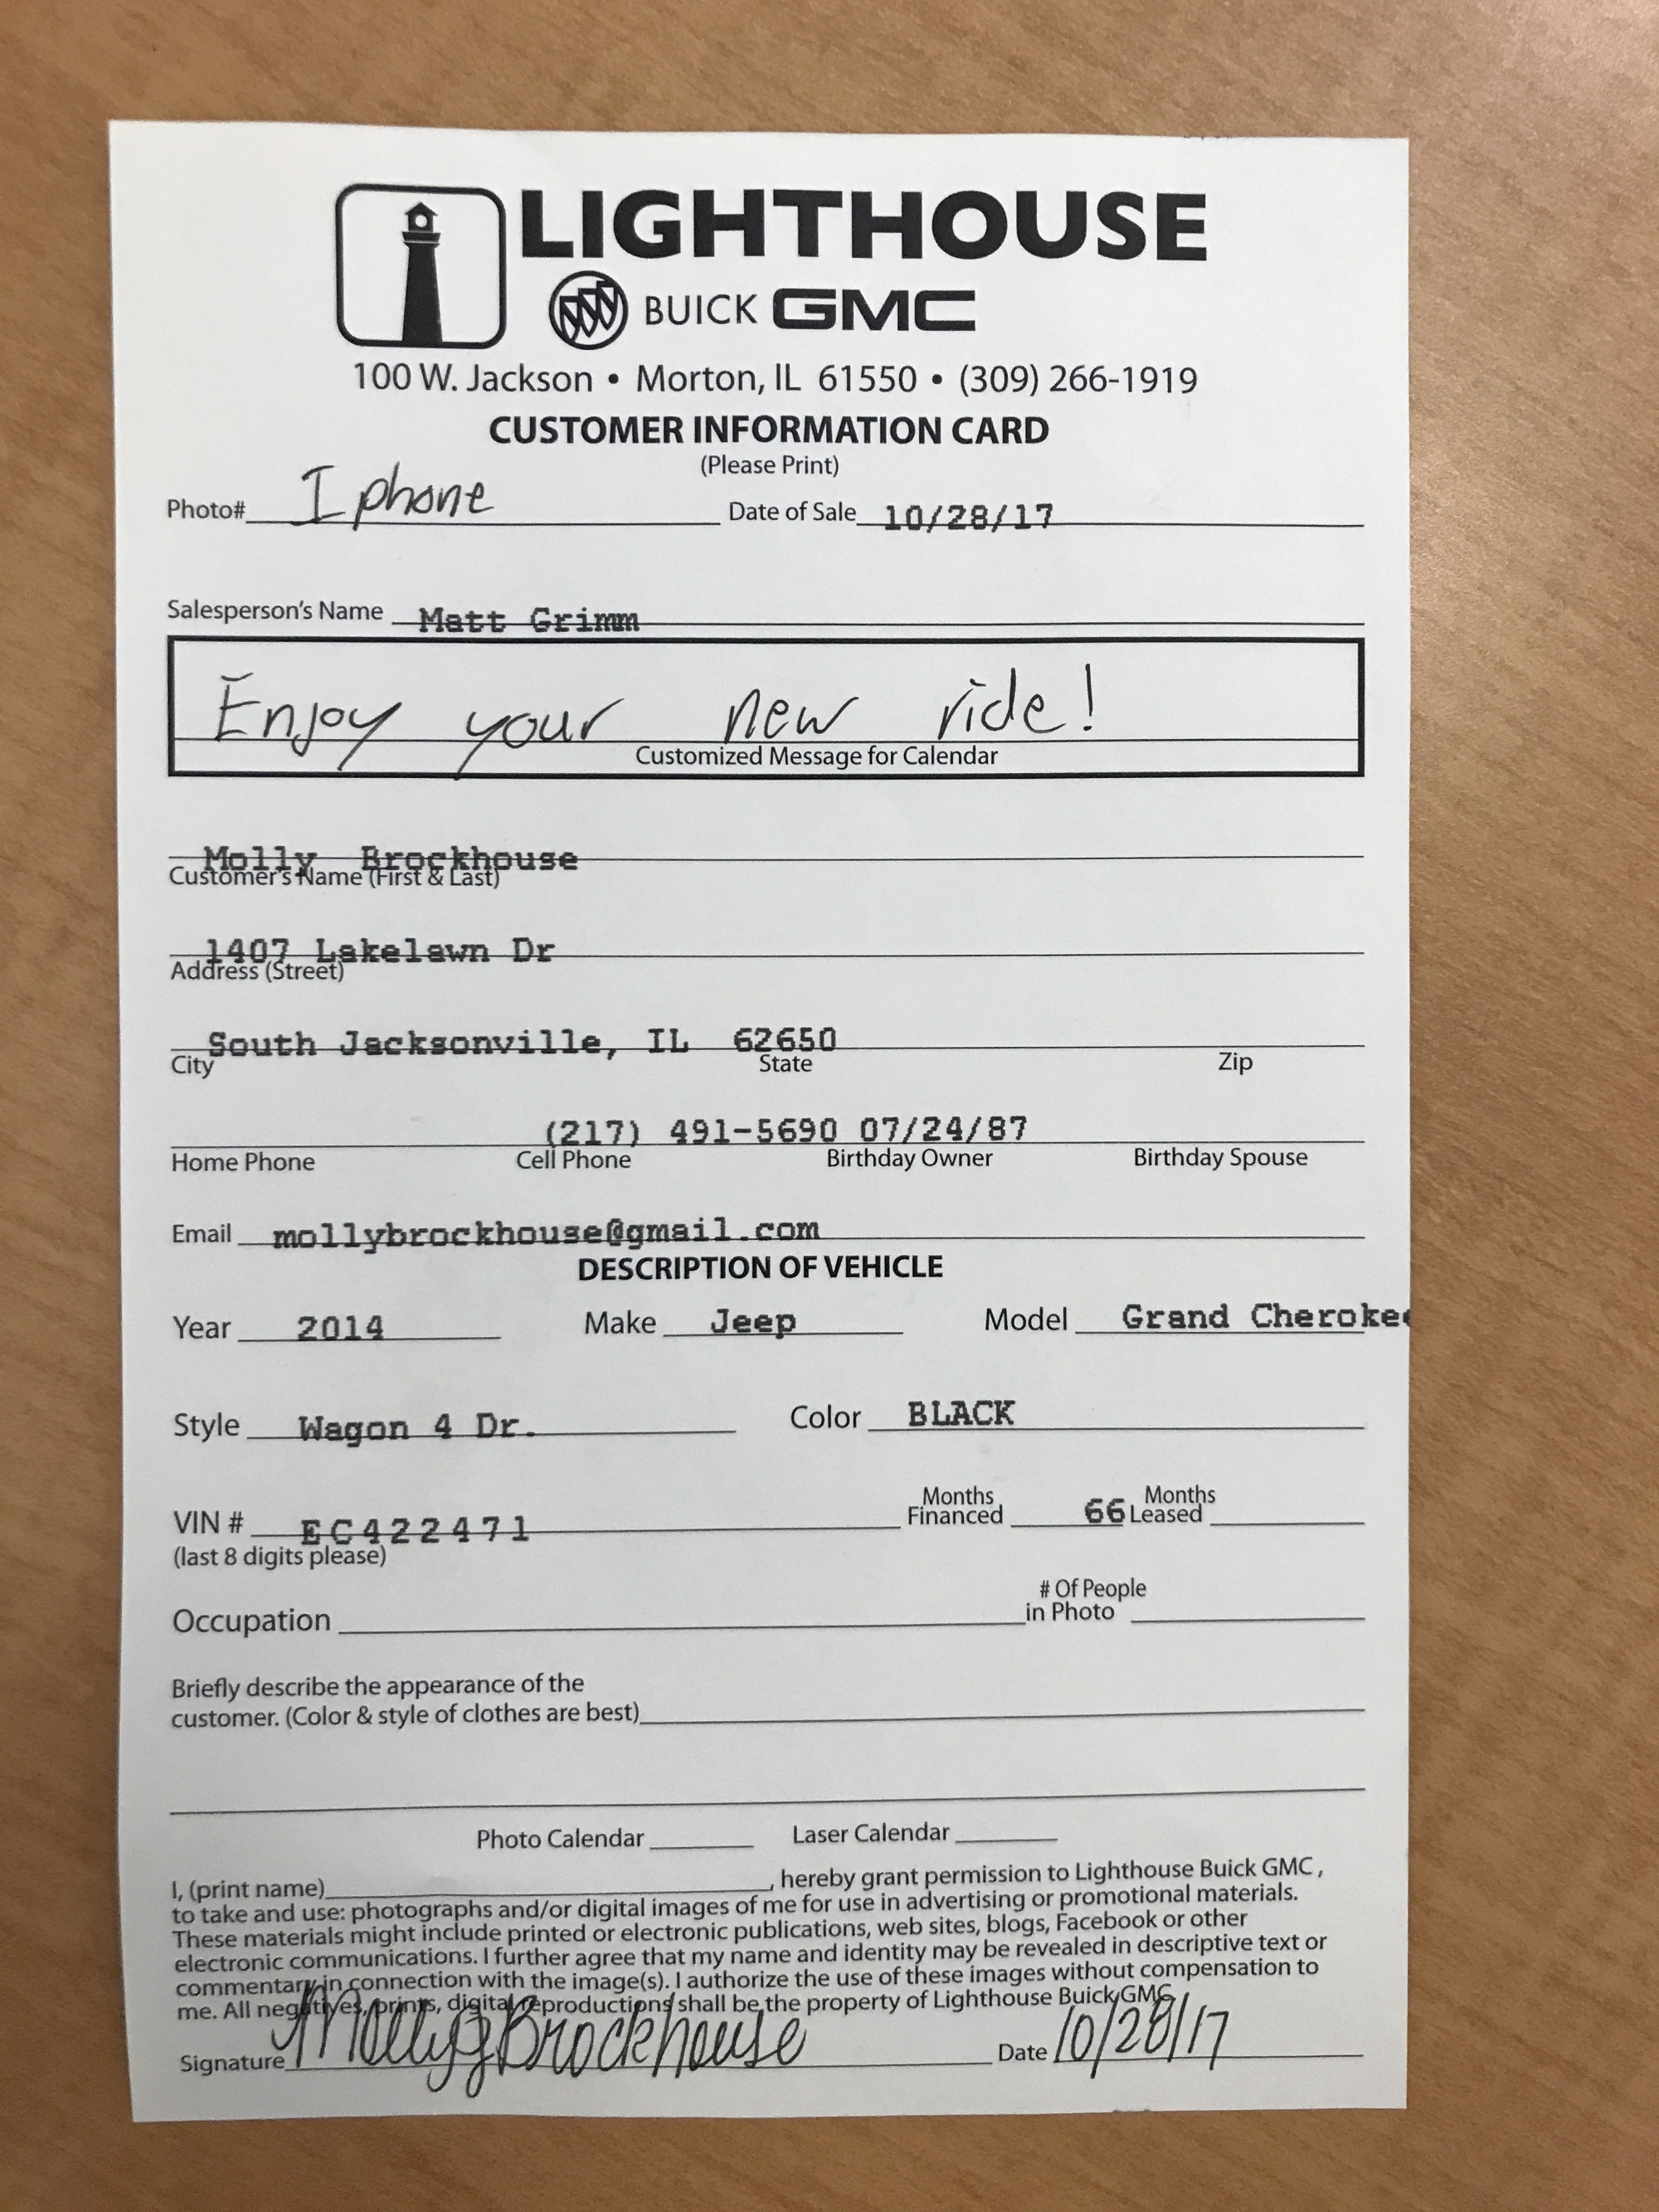 LIGHTHOUSE
BUICK GMC
100 W. Jackson • Morton, IL 61550 • (309) 266-1919
CUSTOMER INFORMATION CARD
(Please Print)
Photo# Iphone Date of Sale 10/28/17
Salesperson's Name Matt Grimm
Enjoy your new ride!
Customized Message for Calendar
Molly Brockhouse
Customer's Name (First & Last)
1407 Lakelawn Dr
Address (Street)
South Jacksonville, IL 62650
City State Zip
(217) 491-5690 07/24/87
Home Phone Cell Phone Birthday Owner Birthday Spouse
Email mollybrockhouse@gmail.com
DESCRIPTION OF VEHICLE
Year 2014 Make Jeep Model Grand Cherokee
Style Wagon 4 Dr. Color BLACK
Months Months
VIN # EC422471 Financed 66 Leased
(last 8 digits please)
# Of People
Occupation in Photo
Briefly describe the appearance of the
customer. (Color & style of clothes are best)
Photo Calendar Laser Calendar
I, (print name) , hereby grant permission to Lighthouse Buick GMC ,
to take and use: photographs and/or digital images of me for use in advertising or promotional materials.
These materials might include printed or electronic publications, web sites, blogs, Facebook or other
electronic communications. I further agree that my name and identity may be revealed in descriptive text or
commentary in connection with the image(s). I authorize the use of these images without compensation to
me. All negatives, prints, digital reproductions shall be the property of Lighthouse Buick GMC.
Signature Molly J Brockhouse Date 10/28/17